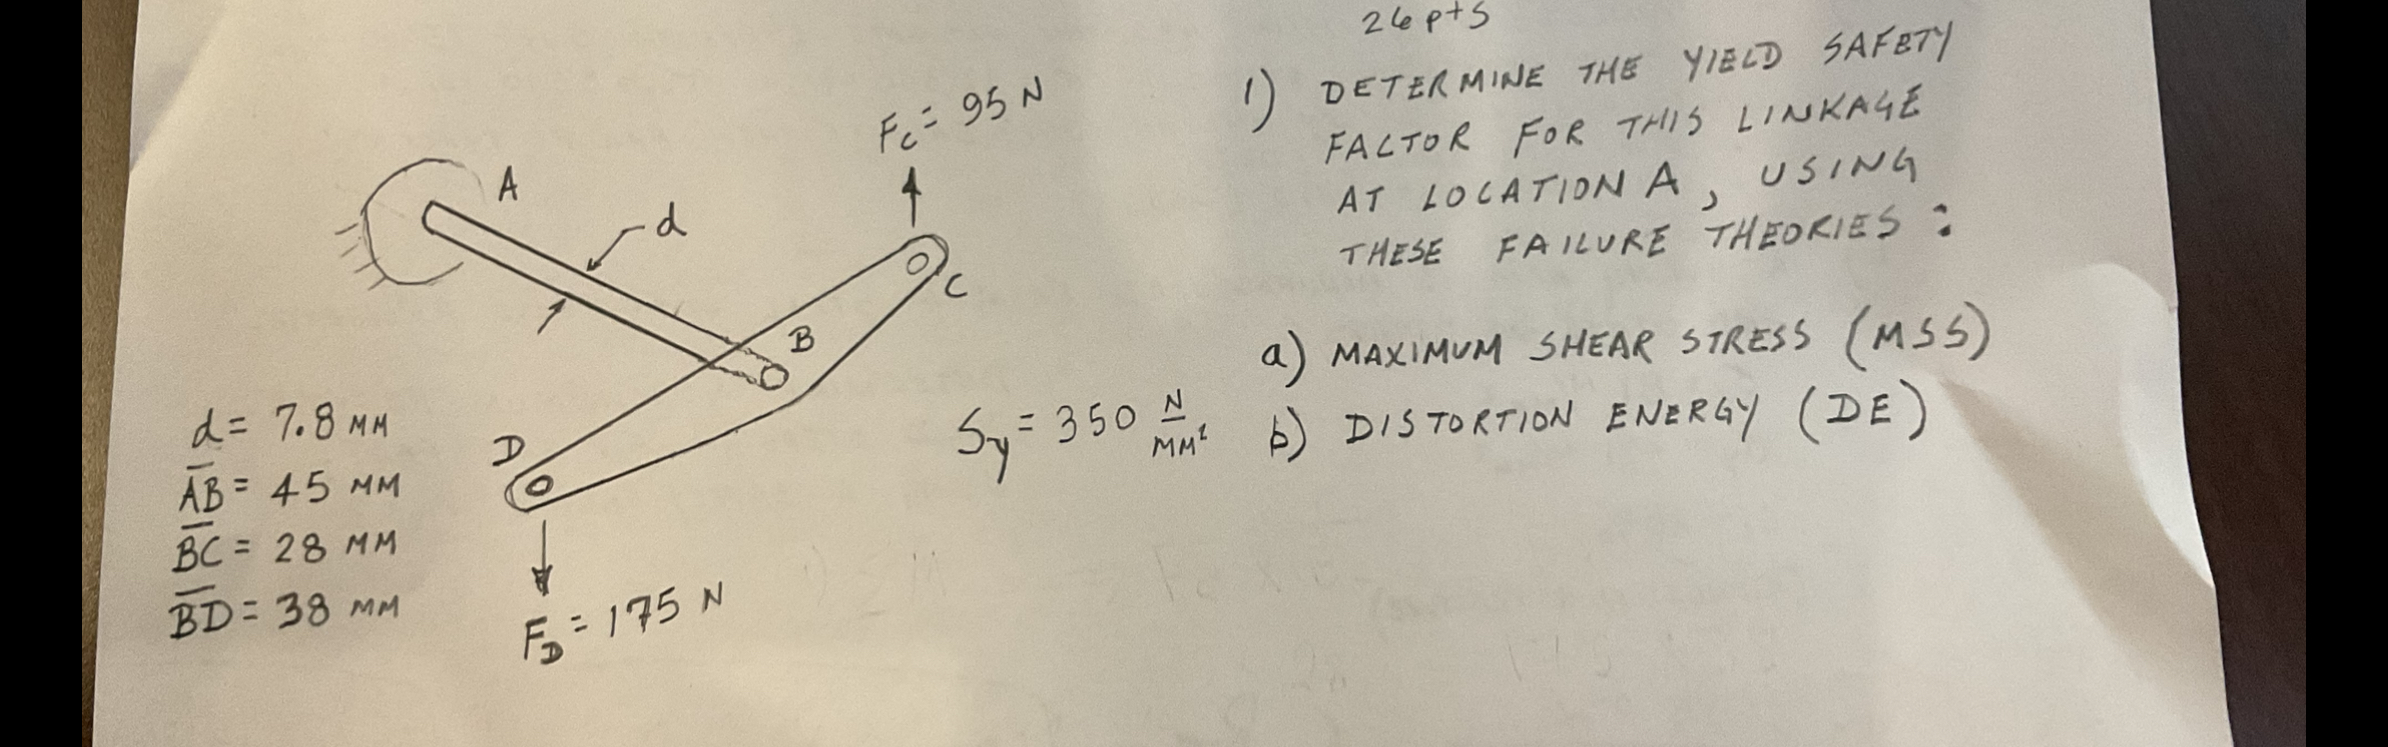 26 pts
1) DETERMINE THE YIELD SAFETY
FACTOR FOR THIS LINKAGE
AT LOCATION A, USING
THESE FAILURE THEORIES:
a) MAXIMUM SHEAR STRESS (MSS)
b) DISTORTION ENERGY (DE)
Sy = 350 N/MM²
FC = 95 N
A
d
B
C
D
d = 7.8 MM
A̅B̅ = 45 MM
B̅C̅ = 28 MM
B̅D̅ = 38 MM
FD = 175 N